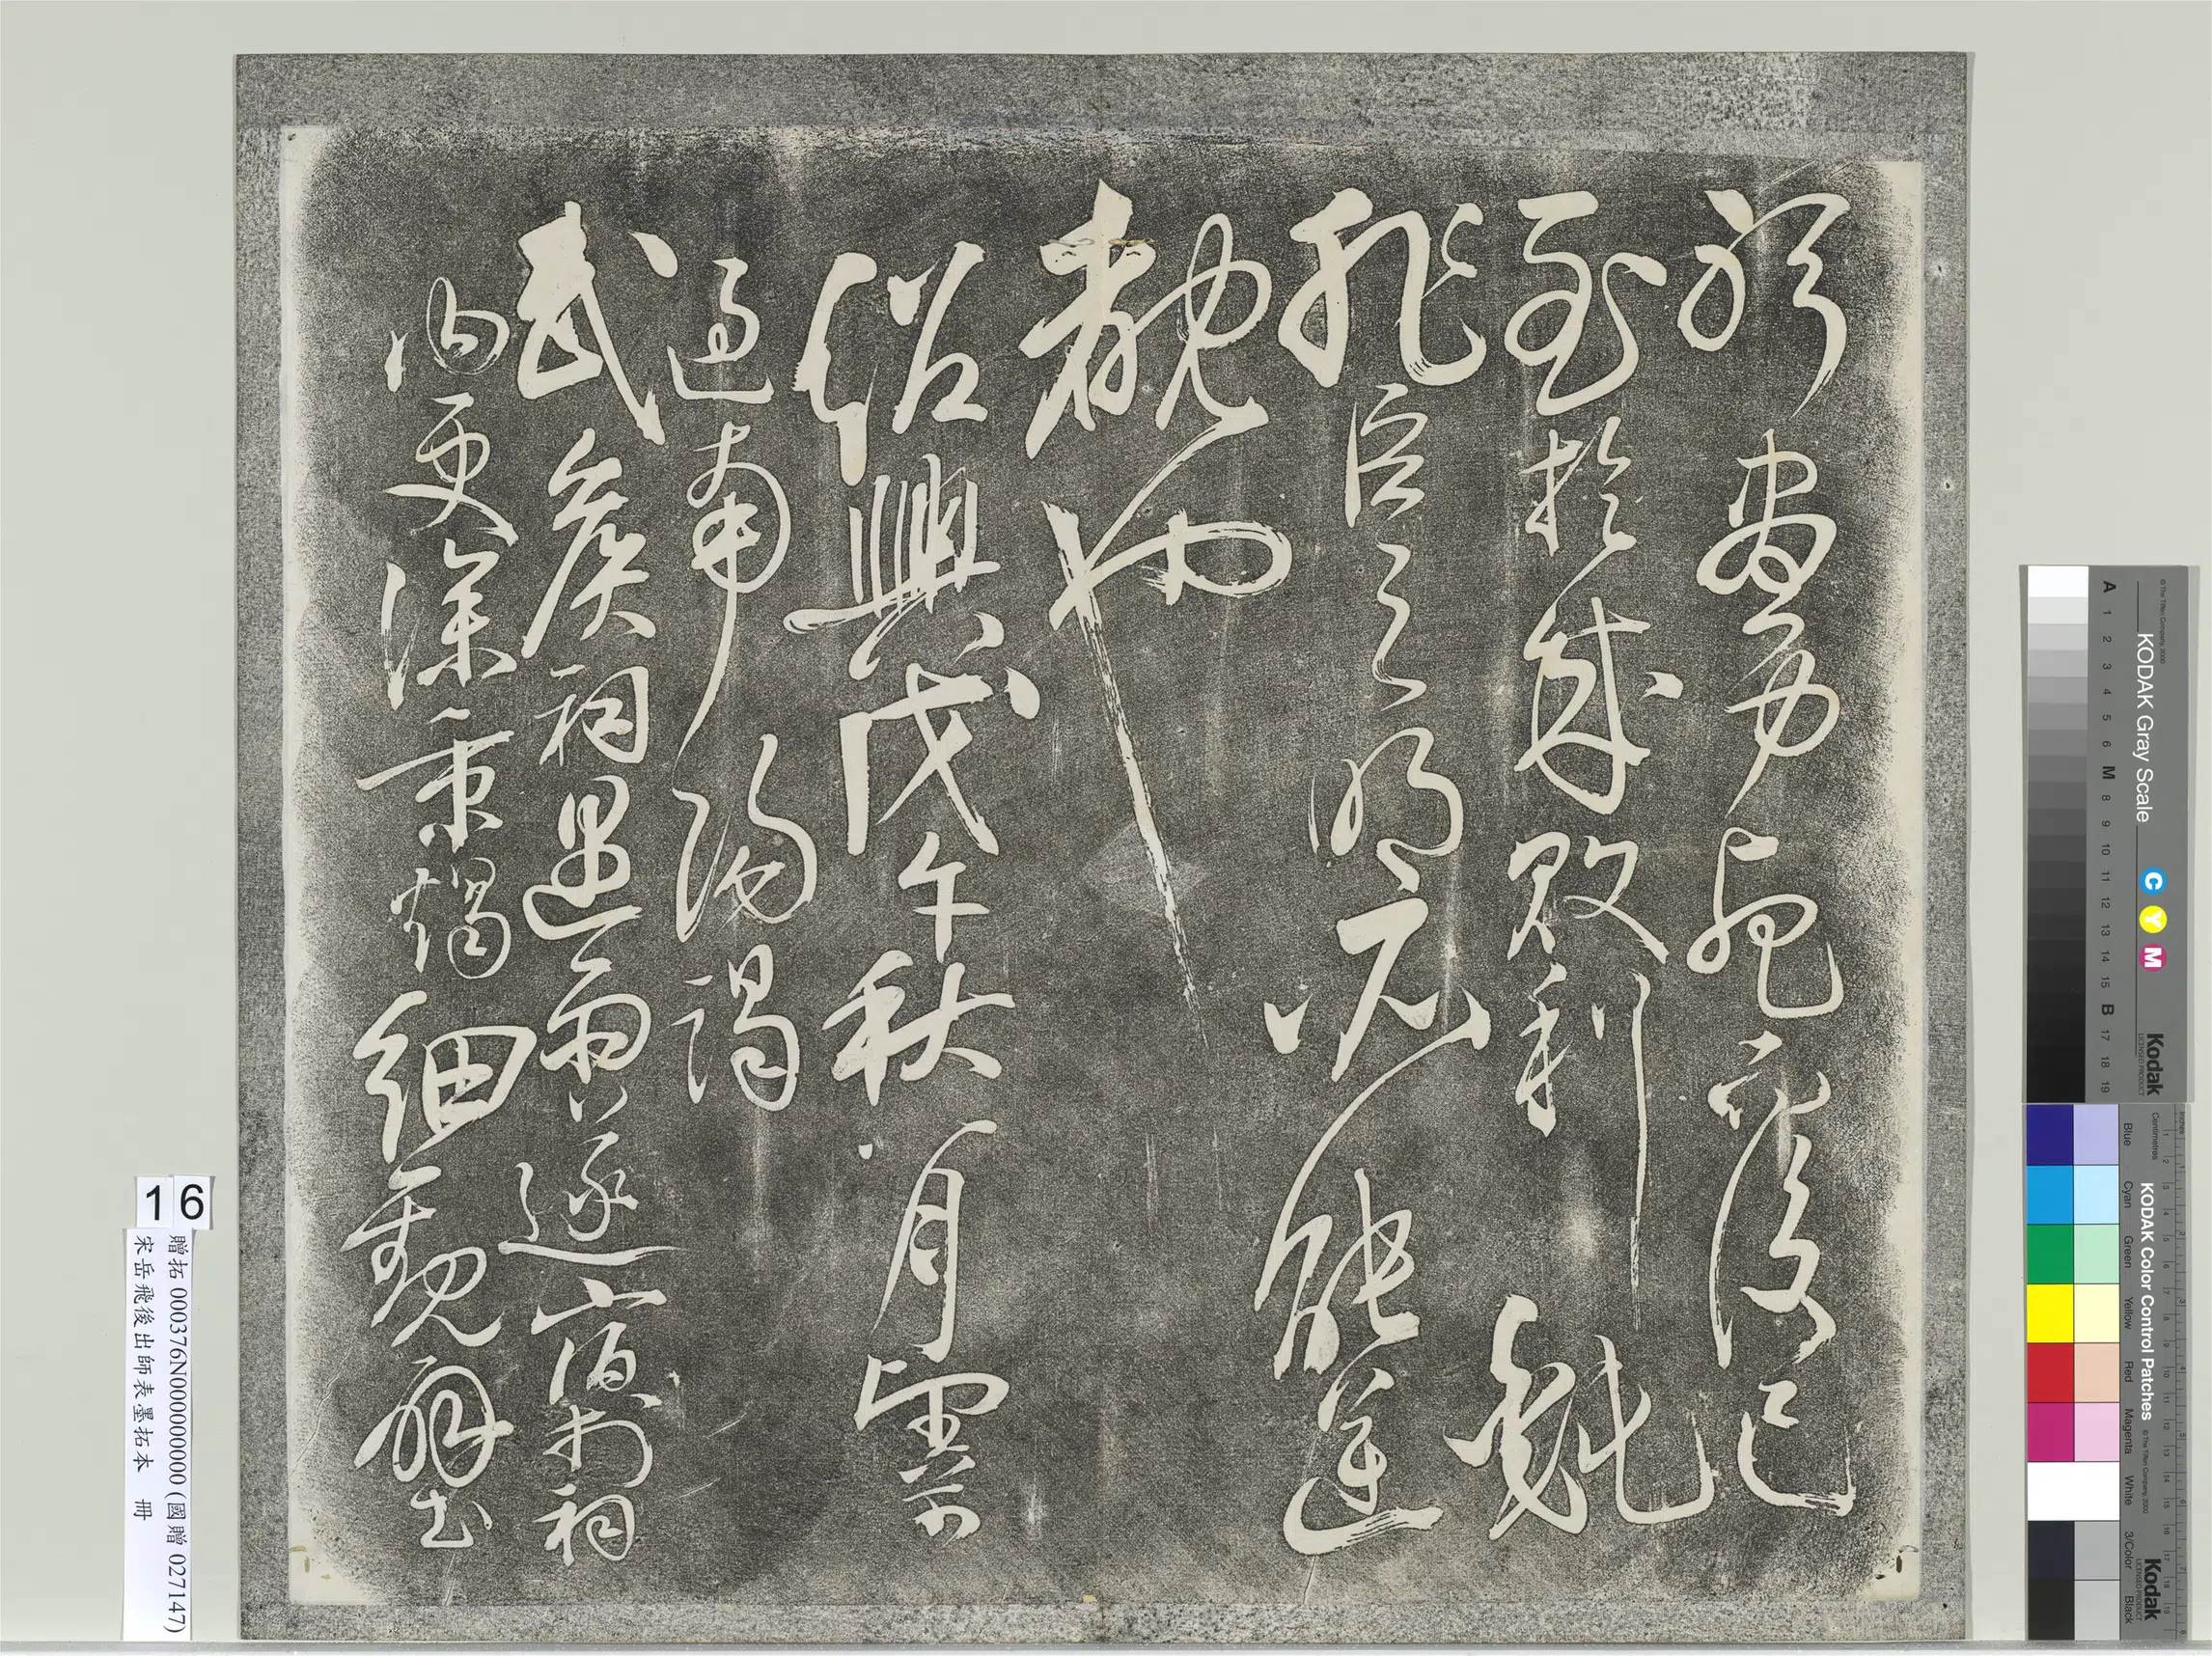 躬盡力死而後已
至於成敗利鈍
非臣之明所能逆
覩也
紹興戊午秋八月望前
過南陽謁
武侯祠遇雨遂宿於祠
內更深秉燭細觀壁
16
贈拓 000376N000000000 (國贈 027147)
宋岳飛後出師表墨拓本 冊
© The Tiffen Company, 2000
KODAK Gray Scale
C Y M
Kodak
LICENSED PRODUCT
A 1 2 3 4 5 6 M 8 9 10 11 12 13 14 15 B 17 18 19
KODAK Color Control Patches
© The Tiffen Company, 2000
Kodak
LICENSED PRODUCT
Centimetres
Blue Cyan Green Yellow Red Magenta White 3/Color Black